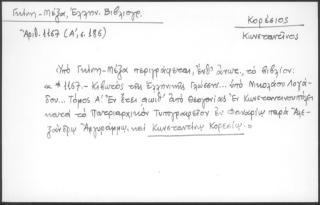 Γκίνη - Μέξα, Ἑλλην. Βιβλιογρ.
Ἀριθ. 1167 (Α', σ. 186)
Κορέσιος
Κωνσταντῖνος
Ὑπὸ Γκίνη-Μέξα περιγράφεται, ἔνθ' ἀνωτ., τὸ βιβλίον:
« * 1167. - Κιβωτὸς τῆς Ἑλληνικῆς Γλώσσης... ὑπὸ Νικολάου Λογά-
δου... Τόμος Α'. Ἐν ἔτει αωιθ' ἀπὸ Θεογονίας Ἐν Κωνσταντινουπόλει
κατὰ τὸ Πατριαρχικὸν Τυπογραφεῖον ἐν Φαναρίῳ παρὰ Ἀλε-
ξάνδρῳ Ἀργυράμμῳ, καὶ Κωνσταντίνῳ Κορεσίῳ.»